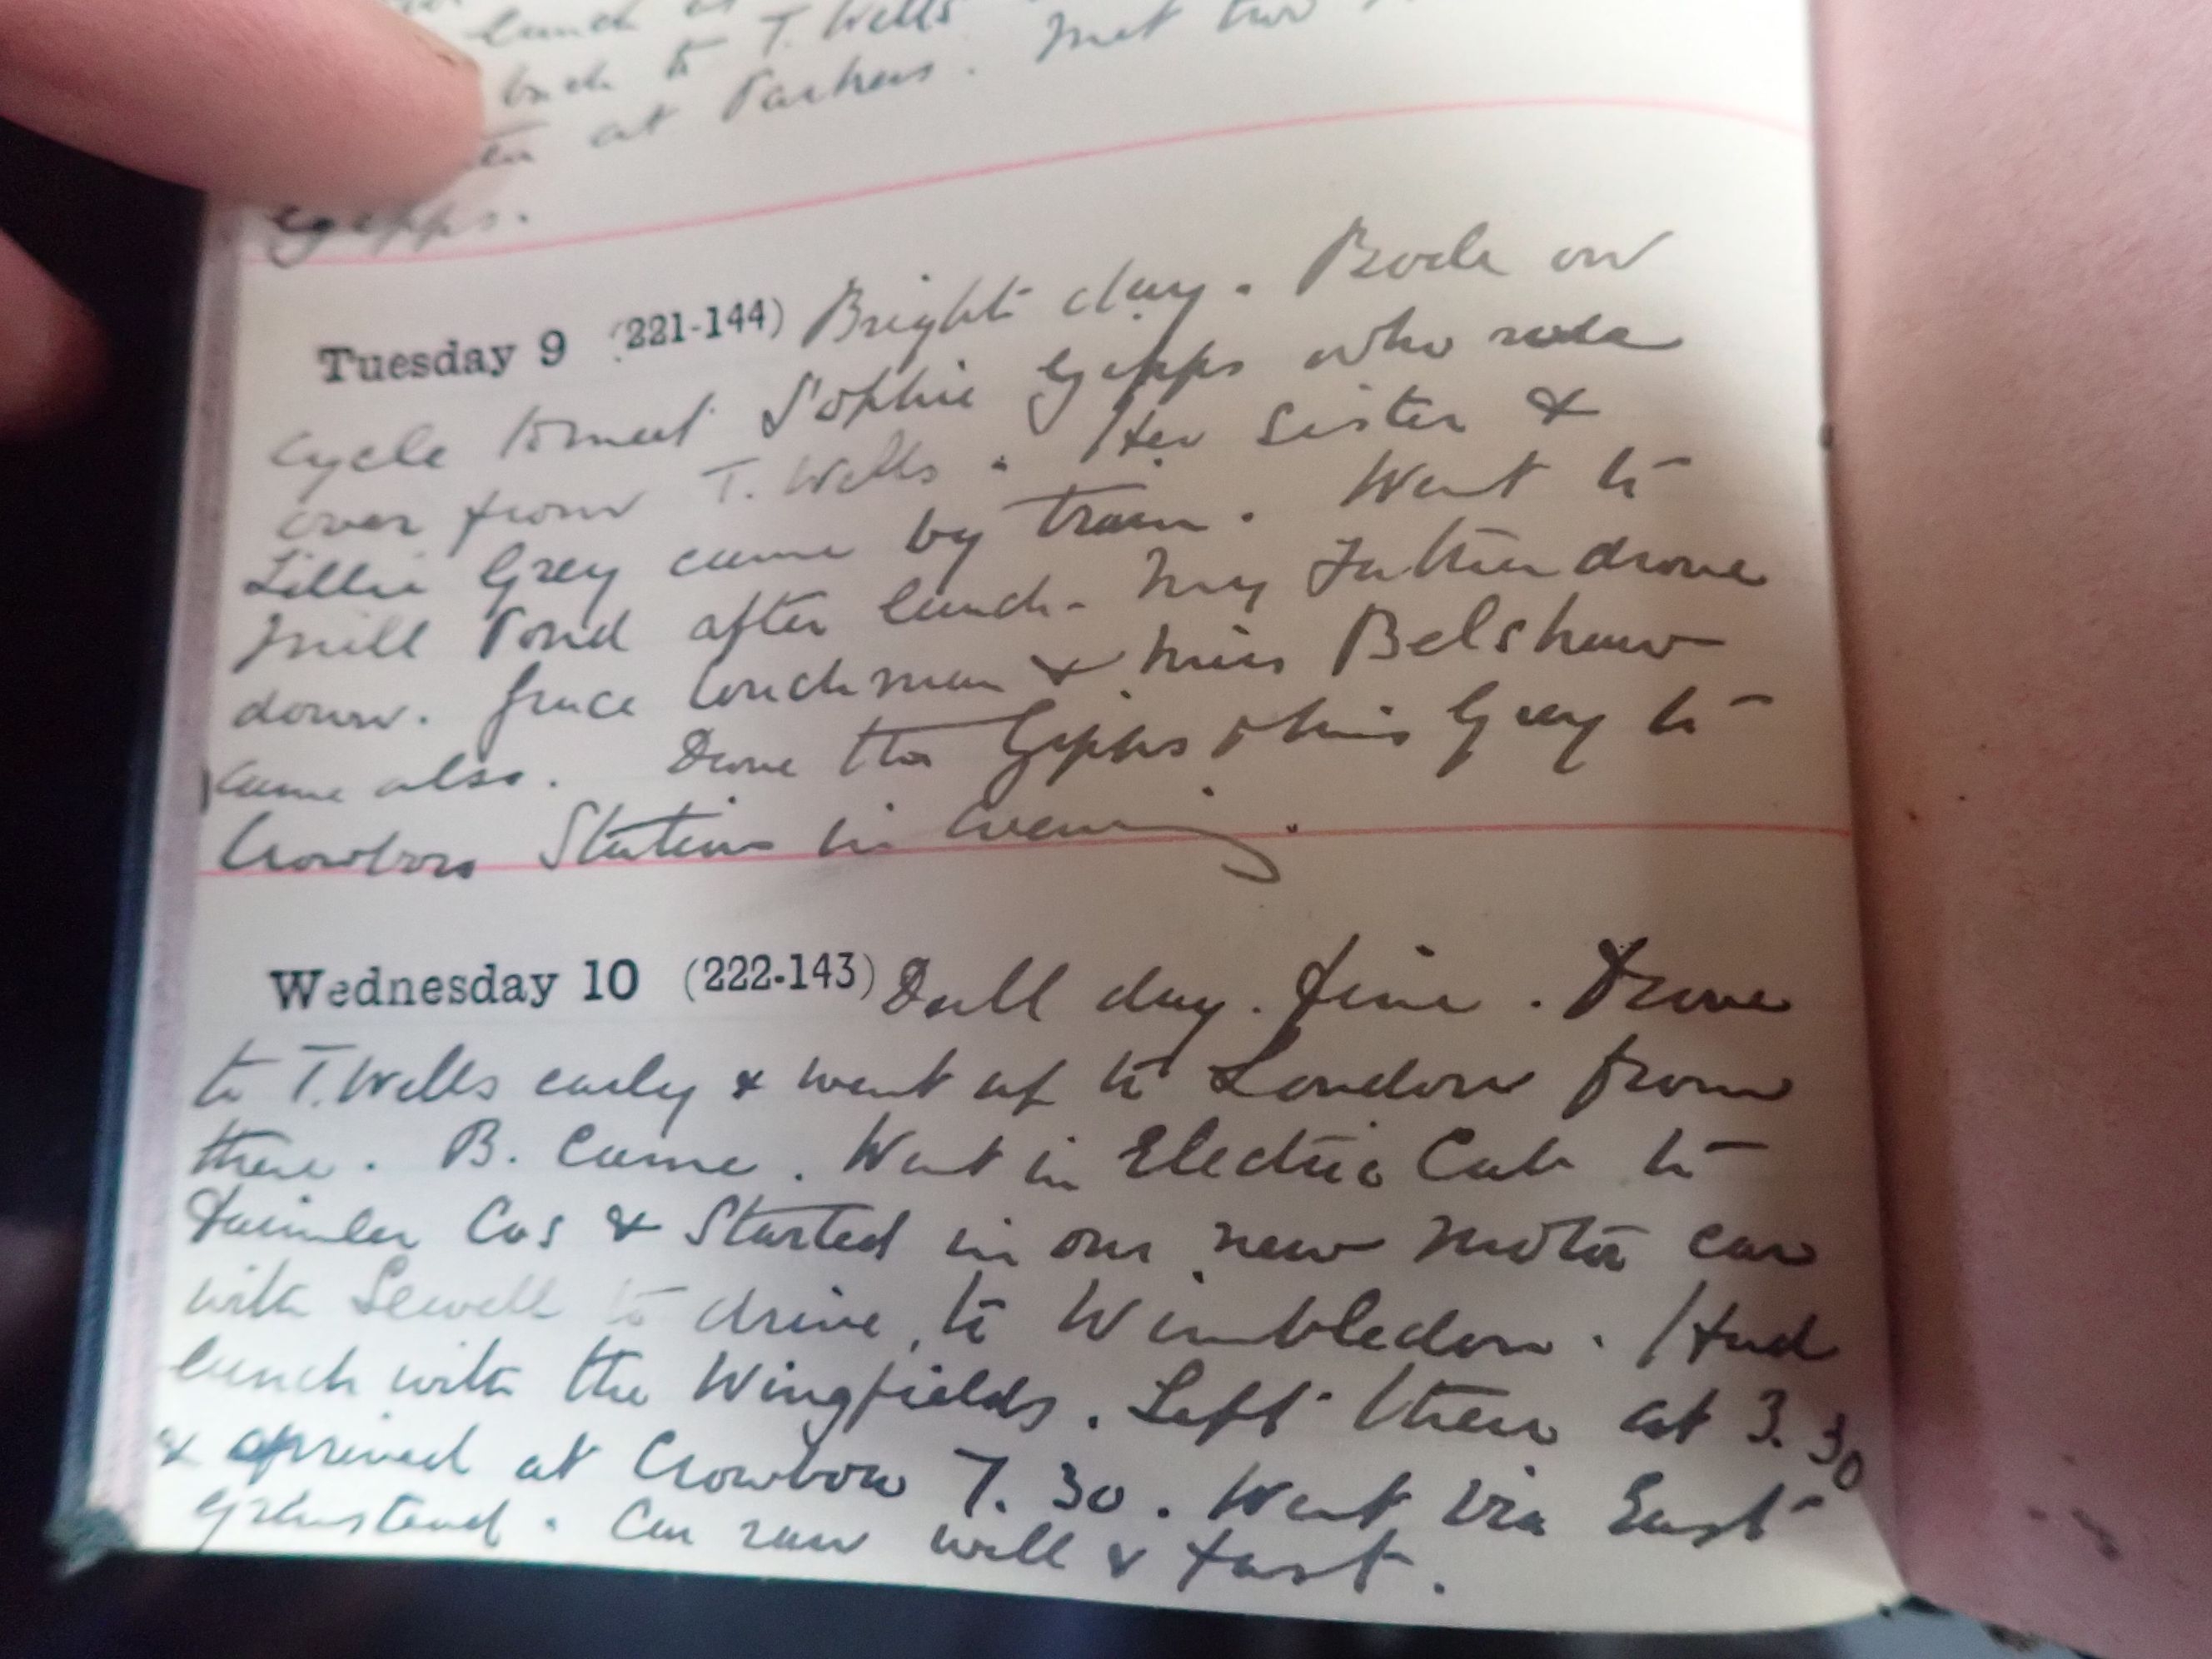 lunch at
back to T. Wells
tea at Parkers. Met two
Gepps.
Tuesday 9 (221-144) Bright day. Rode on
cycle to meet Sophie Gepps who rode
over from T. Wells. Her sister &
Lillie Grey came by train. Went to
Mill Pond after lunch. My Father drove
down. Grace Couchman & Miss Belshaw
came also. Drove the Gepps & Miss Grey to
Crowboro Station in evening.
Wednesday 10 (222-143) Dull day. fine. Drove
to T. Wells early & went up to London from
there. B. came. Went in Electric Cab to
Daimler Cos & Started in our new motor car
with Sewell to drive, to Wimbledon. Had
lunch with the Wingfields. Left there at 3.30
& arrived at Crowboro 7.30. Went via East
Grinstead. Car ran well & fast.